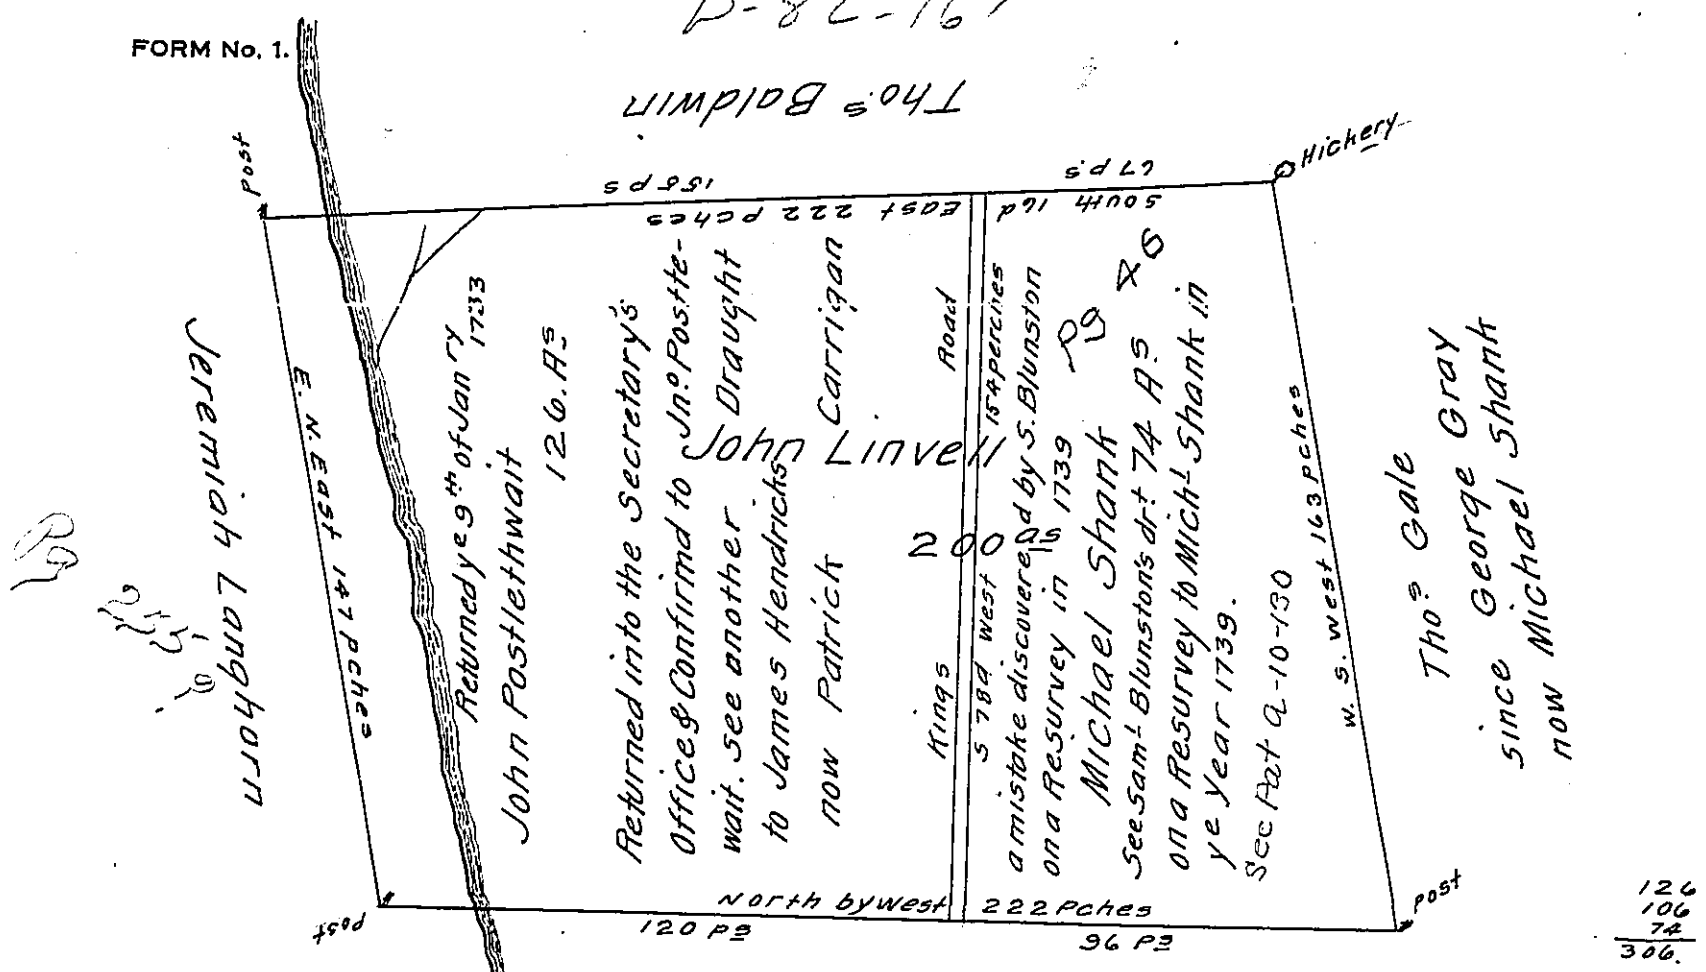 D-82-167
FORM No. 1.
Tho.s Baldwin
Post
Hickery
155 ps
67 p.s
South 16d East 222 pches
Jeremiah Langhorn
E. N. East 147 pches
Returned ye 9th of Jan ry 1733
John Postlethwait
126. As
Returned into the Secretary's
Office & Confirmd to Jno. Postle-
wait. see another Draught
to James Hendricks
now Patrick Carrigan
John Linvell
200 as
Kings Road
S 78d West 154 perches
a mistake discovered by S. Blunston
on a Resurvey in 1739
Michael Shank
Pg 46
See Saml Blunston's drt 74 As
on a Resurvey to Michl Shank in
ye Year 1739.
See Pat a-10-130
W. S. West 163 pches
Thos Gale
since George Gray
now Michael Shank
post
North by west 222 Pches
120 Ps
96 Ps
post
126
106
74
306.
Pg